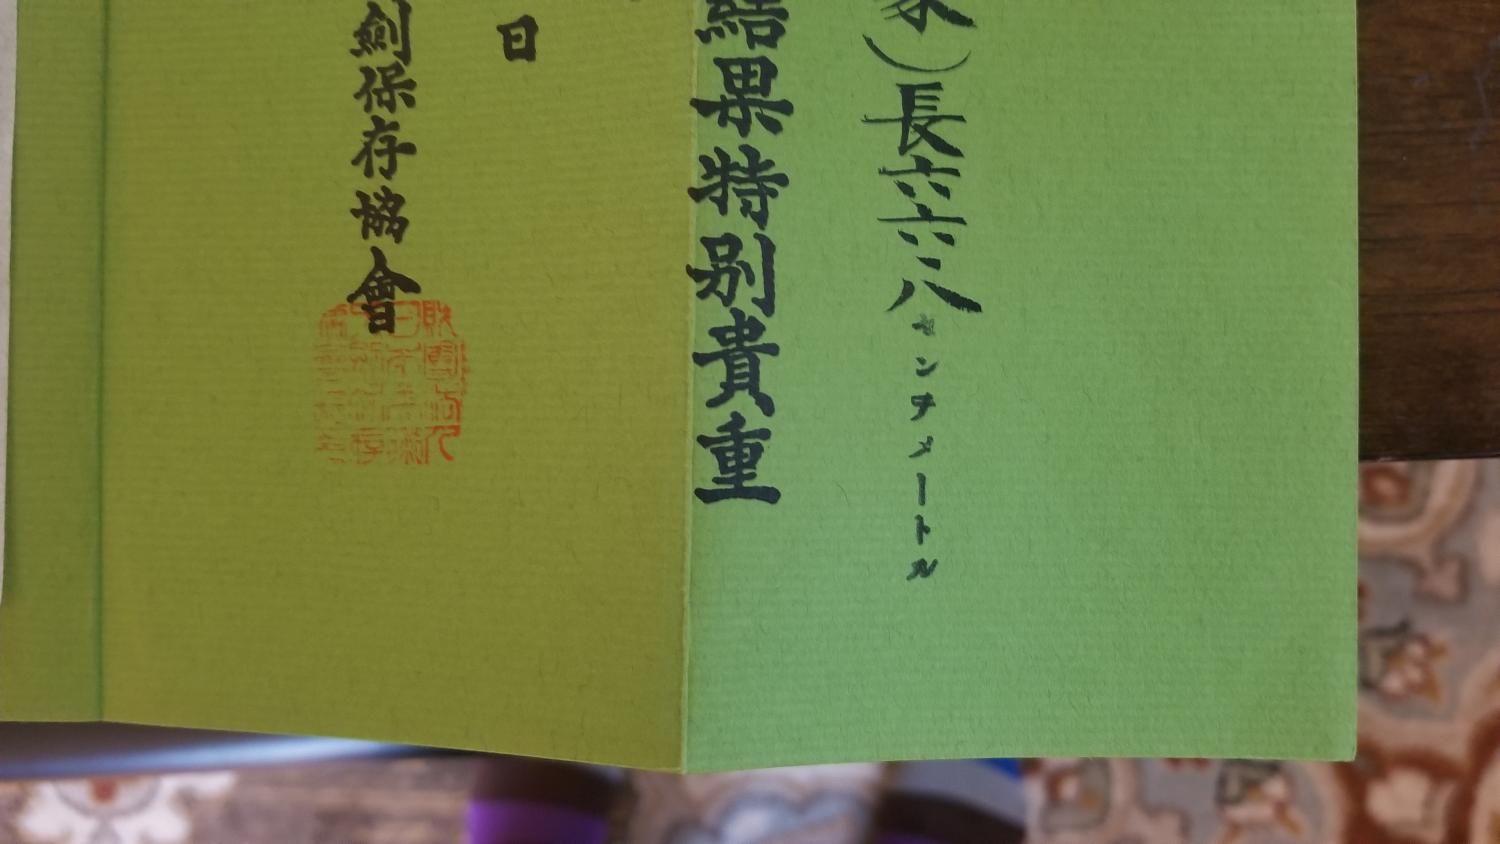 ）長六六、八センチメートル
結果特別貴重
日
劍保存協會
財團法人